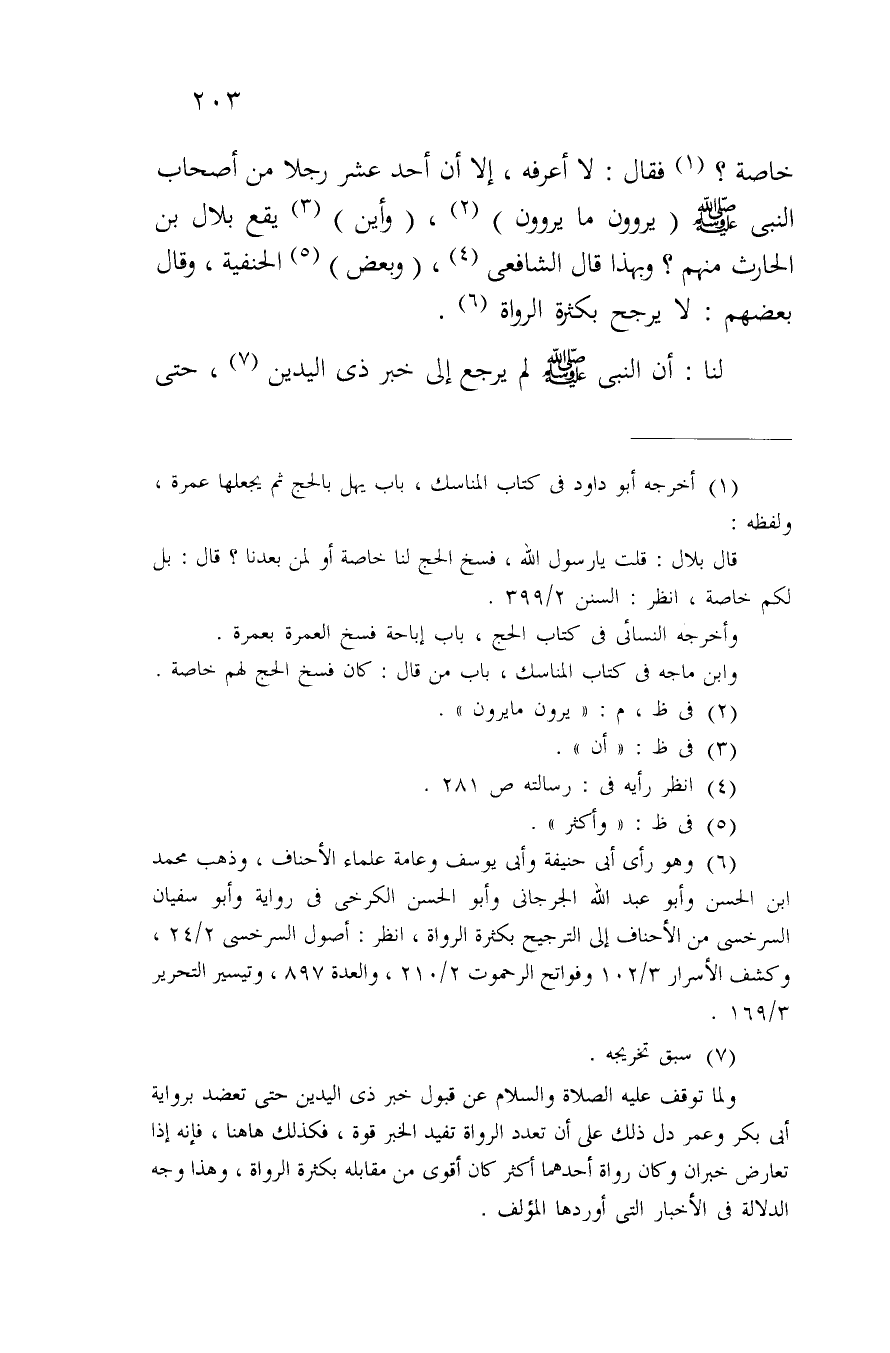 ٢٠٣
خاصة ؟ (١) فقال : لا أعرفه ، إلا أن أحد عشر رجلا من أصحاب
النبى ﷺ ( يروون ما يروون ) (٢) ، ( وأين ) (٣) يقع بلال بن
الحارث منهم ؟ وبهذا قال الشافعى (٤) ، ( وبعض ) (٥) الحنفية ، وقال
بعضهم : لا يرجح بكثرة الرواة (٦) .
لنا : أن النبى ﷺ لم يرجع إلى خبر ذى اليدين (٧) ، حتى
(١) أخرجه أبو داود فى كتاب المناسك ، باب يهل بالحج ثم يجعلها عمرة ،
ولفظه :
قال بلال : قلت يارسول الله ، فسخ الحج لنا خاصة أو لمن بعدنا ؟ قال : بل
لكم خاصة ، انظر : السنن ٣٩٩/٢ .
وأخرجه النسائى فى كتاب الحج ، باب إباحة فسخ العمرة بعمرة .
وابن ماجه فى كتاب المناسك ، باب من قال : كان فسخ الحج لهم خاصة .
(٢) فى ظ ، م : « يرون مايرون » .
(٣) فى ظ : « أن » .
(٤) انظر رأيه فى : رسالته ص ٢٨١ .
(٥) فى ظ : « وأكثر » .
(٦) وهو رأى أبى حنيفة وأبى يوسف وعامة علماء الأحناف ، وذهب محمد
ابن الحسن وأبو عبد الله الجرجانى وأبو الحسن الكرخى فى رواية وأبو سفيان
السرخسى من الأحناف إلى الترجيح بكثرة الرواة ، انظر : أصول السرخسى ٢٤/٢ ،
وكشف الأسرار ١٠٢/٣ وفواتح الرحموت ٢١٠/٢ ، والعدة ٨٩٧ ، وتيسير التحرير
١٦٩/٣ .
(٧) سبق تخريجه .
ولما توقف عليه الصلاة والسلام عن قبول خبر ذى اليدين حتى تعضد برواية
أبى بكر وعمر دل ذلك على أن تعدد الرواة تفيد الخبر قوة ، فكذلك هاهنا ، فإنه إذا
تعارض خبران وكان رواة أحدهما أكثر كان أقوى من مقابله بكثرة الرواة ، وهذا وجه
الدلالة فى الأخبار التى أوردها المؤلف .